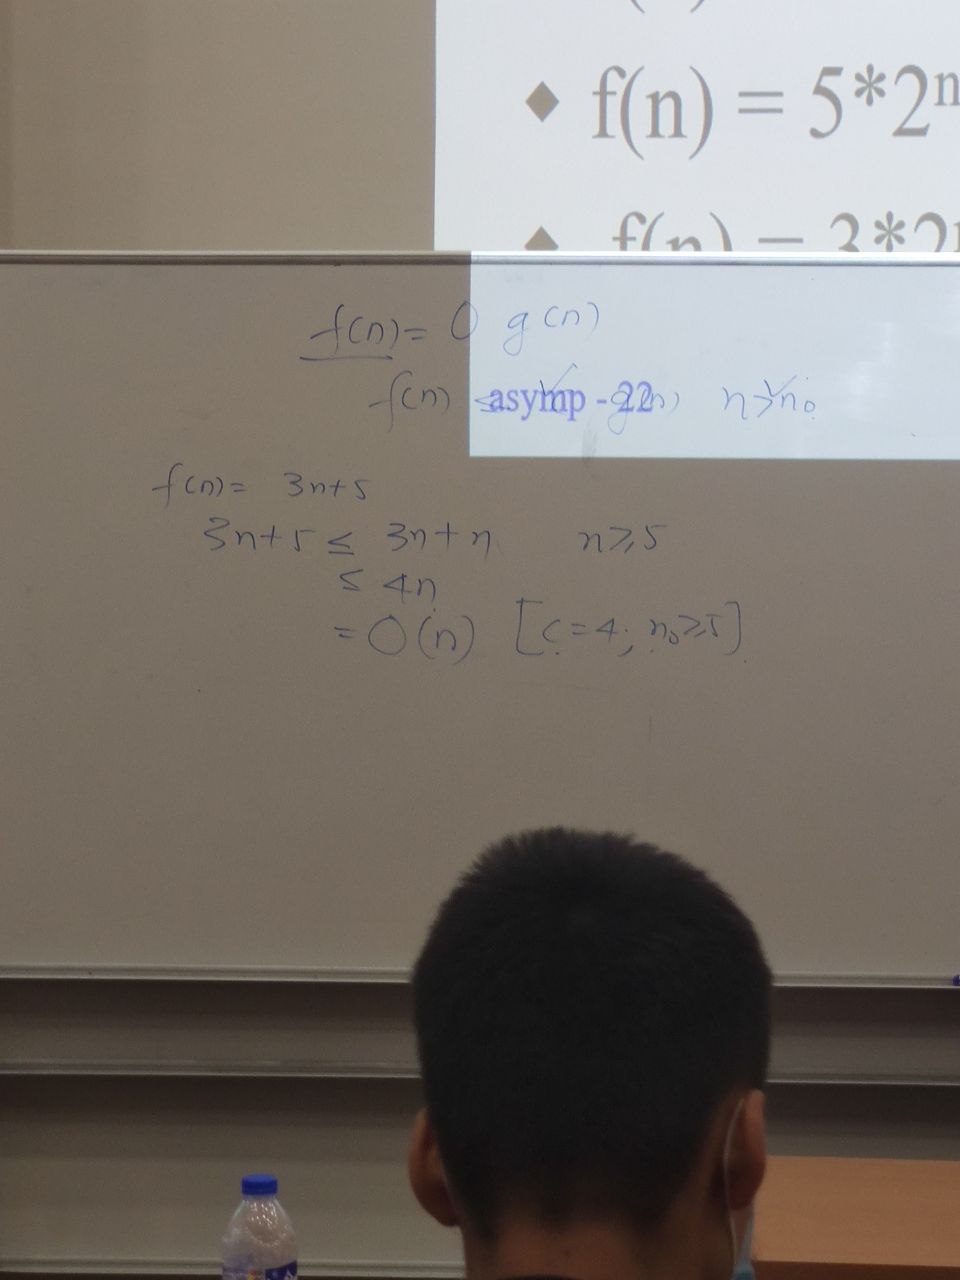 ◆ f(n) = 5*2ⁿ
◆ f(n) = 3*2
f(n) = O g(n)
f(n) ≤ g(n) n ≥ n₀
asymp - 22
f(n) = 3n+5
3n+5 ≤ 3n+n n ≥ 5
≤ 4n
= O(n) [c=4; n₀≥5]